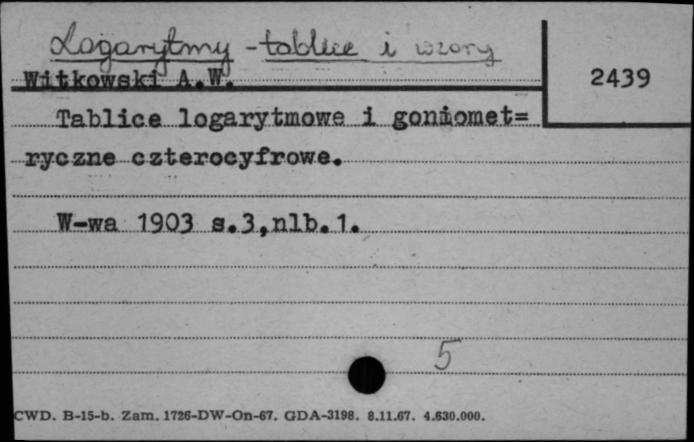 Logarytmy - tablice i wzory
Witkowski A.W.
2439
Tablice logarytmowe i goniomet=
ryczne czterocyfrowe.
W-wa 1903 s.3,nlb.1.
5
CWD. B-15-b. Zam. 1726-DW-On-67. GDA-3198. 8.11.67. 4.630.000.